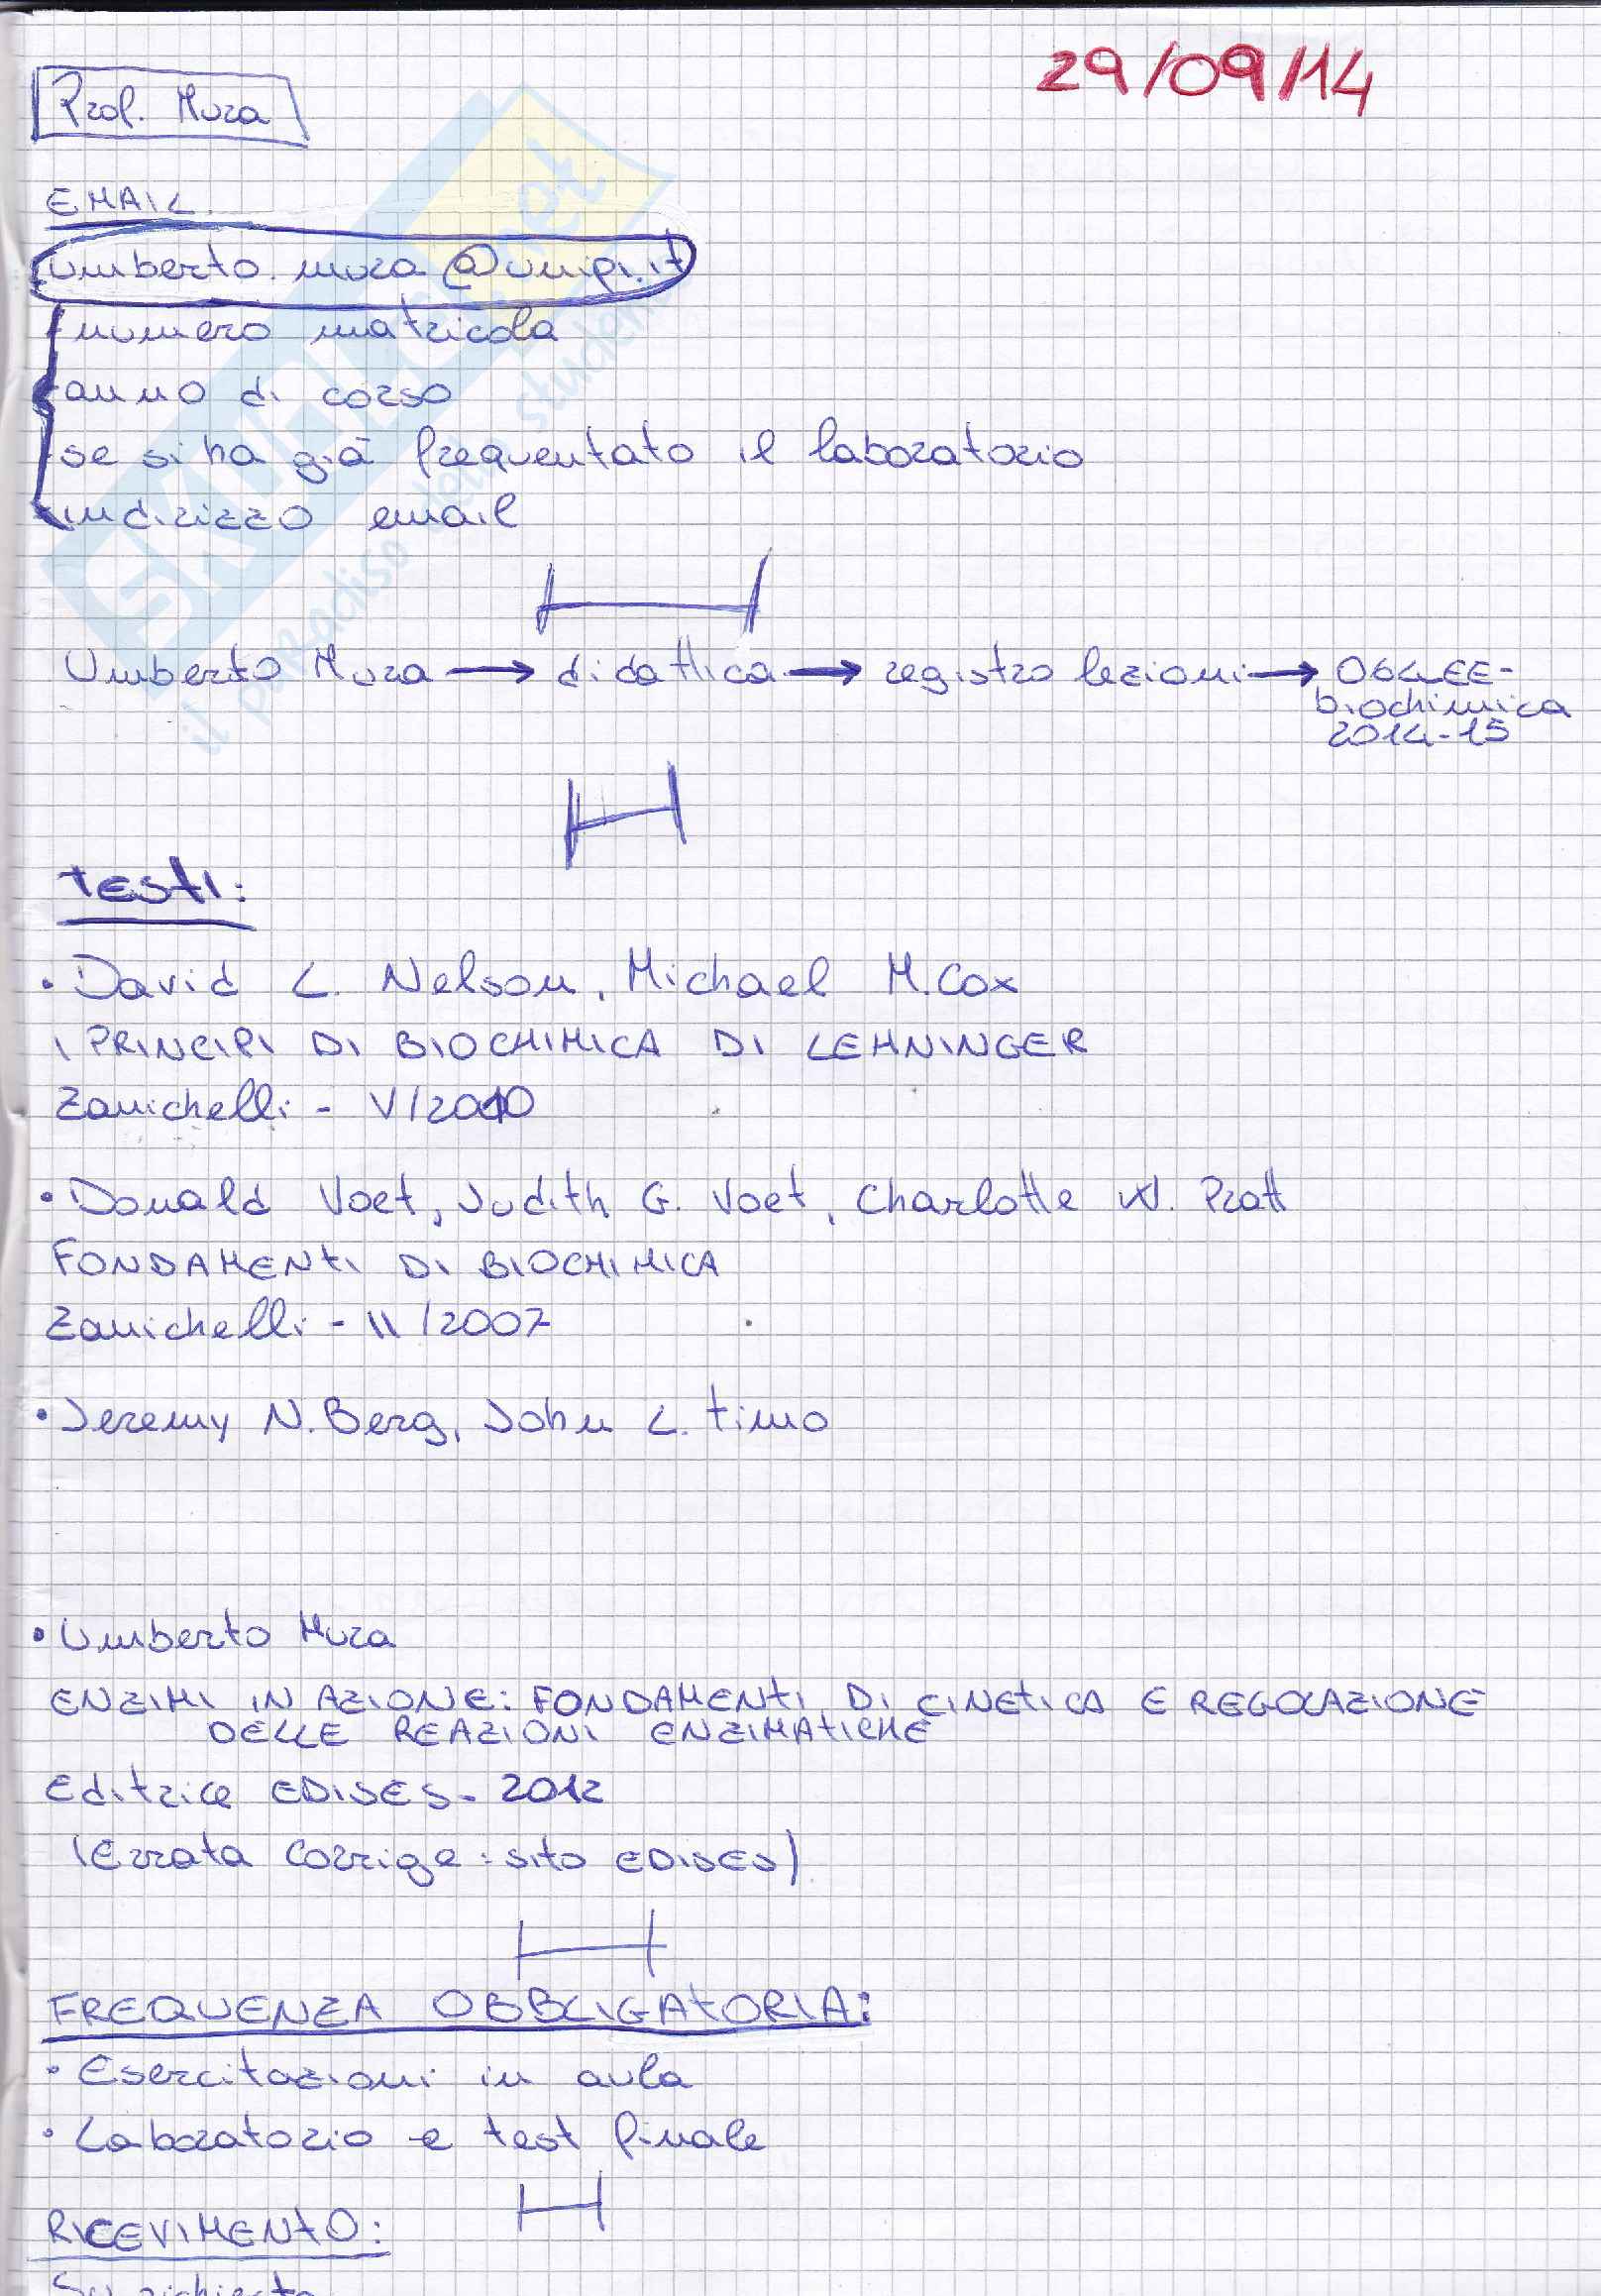 29/09/14
Prof. Mura
EMAIL
umberto.mura@unipi.it
- numero matricola
- anno di corso
- se si ha già frequentato il laboratorio
- indirizzo email
Umberto Mura → didattica → registro lezioni → 064EE-
biochimica
2014-15
TESTI:
• David L. Nelson, Michael M. Cox
I PRINCIPI DI BIOCHIMICA DI LEHNINGER
Zanichelli - V/2010
• Donald Voet, Judith G. Voet, Charlotte W. Pratt
FONDAMENTI DI BIOCHIMICA
Zanichelli - II/2007
• Jeremy N. Berg, John L. Timo
• Umberto Mura
ENZIMI IN AZIONE: FONDAMENTI DI CINETICA E REGOLAZIONE
DELLE REAZIONI ENZIMATICHE
Editrice EDISES - 2012
(Errata Corrige: sito EDISES)
FREQUENZA OBBLIGATORIA:
• Esercitazioni in aula
• Laboratorio e test finale
RICEVIMENTO:
Su richiesta
skuola.net
il paradiso dello studente